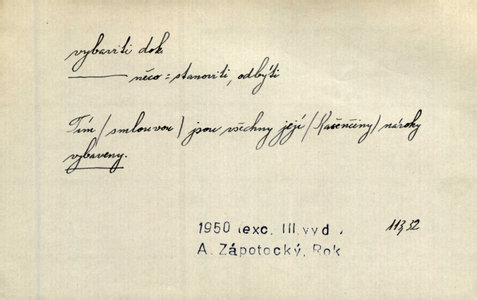 vybaviti dok.
něco = stanoviti, odbýti
Tím / smlouvou / jsou všechny její / Kačenčiny / nároky
vybaveny.
1950 (exc. III. vyd.)
A. Zápotocký, Rok
113, 52